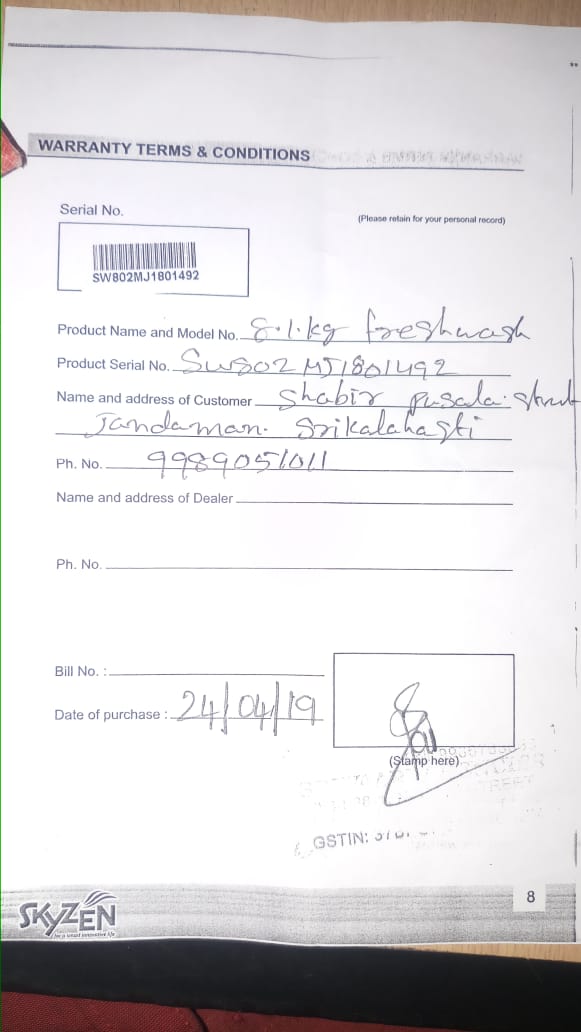 WARRANTY TERMS & CONDITIONS
Serial No.
(Please retain for your personal record)
SW802MJ1801492
Product Name and Model No. 8.1.kg freshwash
Product Serial No. SW802MJ1801492
Name and address of Customer Shabir pusala. street
Jandaman. Srikalahasti
Ph. No. 9989051011
Name and address of Dealer
Ph. No.
Bill No. :
Date of purchase : 24/04/19
(Stamp here)
GSTIN:
8
SKYZEN
for a smart innovative life